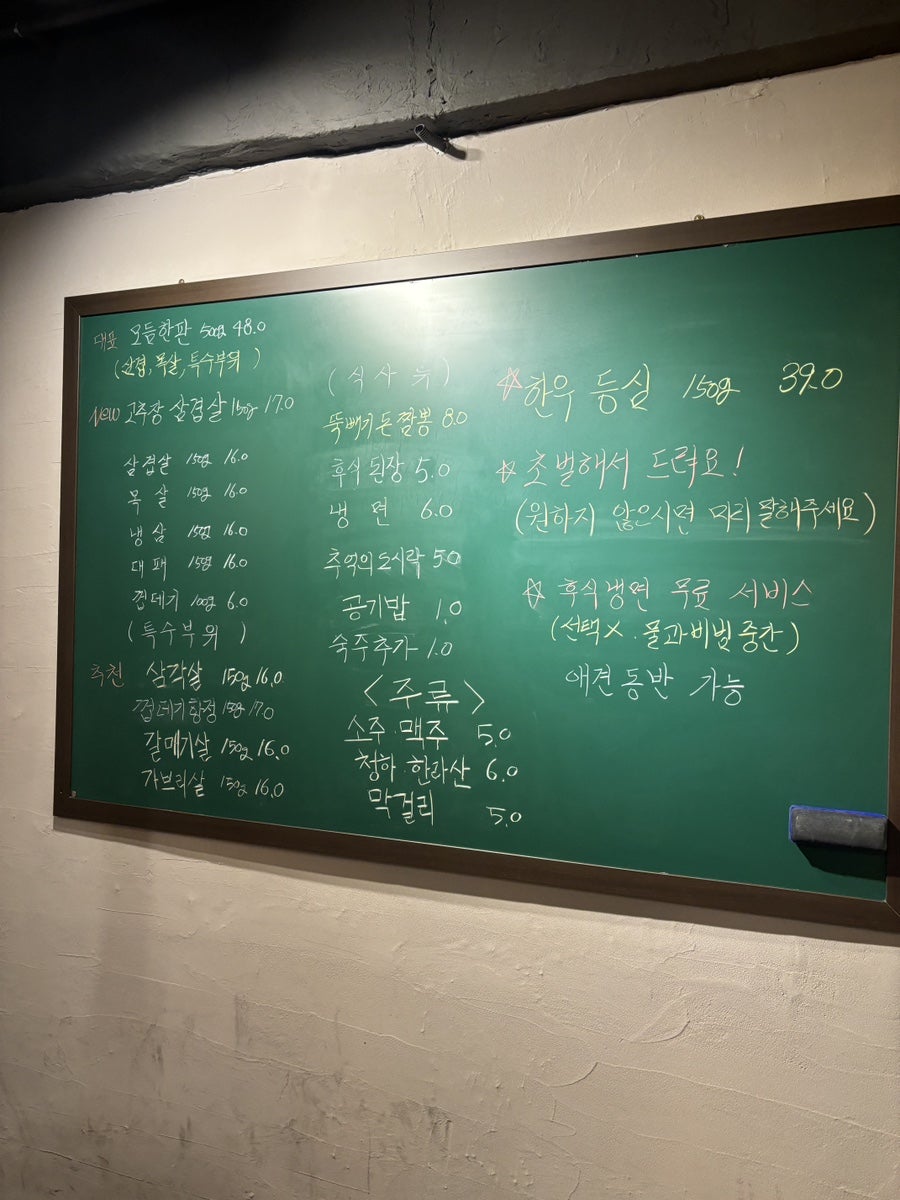 대표 모듬한판 500g 48.0
(삼겹, 목살, 특수부위 )
New 고추장 삼겹살 150g 17.0
삼겹살 150g 16.0
목살 150g 16.0
냉삼 150g 16.0
대패 150g 16.0
껍데기 100g 6.0
(특수부위 )
추천 삼각살 150g 16.0
껍데기항정 150g 17.0
갈매기살 150g 16.0
가브리살 150g 16.0
(식사류)
뚝빼기돈짬뽕 8.0
후식된장 5.0
냉면 6.0
추억의도시락 5.0
공기밥 1.0
숙주추가 1.0
<주류>
소주·맥주 5.0
청하·한라산 6.0
막걸리 5.0
☆한우 등심 150g 39.0
☆초벌해서 드려요!
(원하지 않으시면 미리 말해주세요)
☆후식냉면 무료 서비스
(선택X. 물과비빔중간)
애견동반 가능